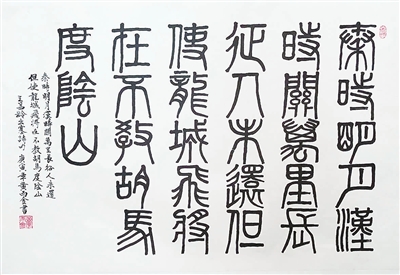 秦時明月漢
時關萬里長
征人未還但
使龍城飛將
在不教胡馬
度陰山
秦時明月漢時關萬里長征人未還
但使龍城飛將在不教胡馬度陰山
王昌齡出塞詩 庚寅年黃雨金書